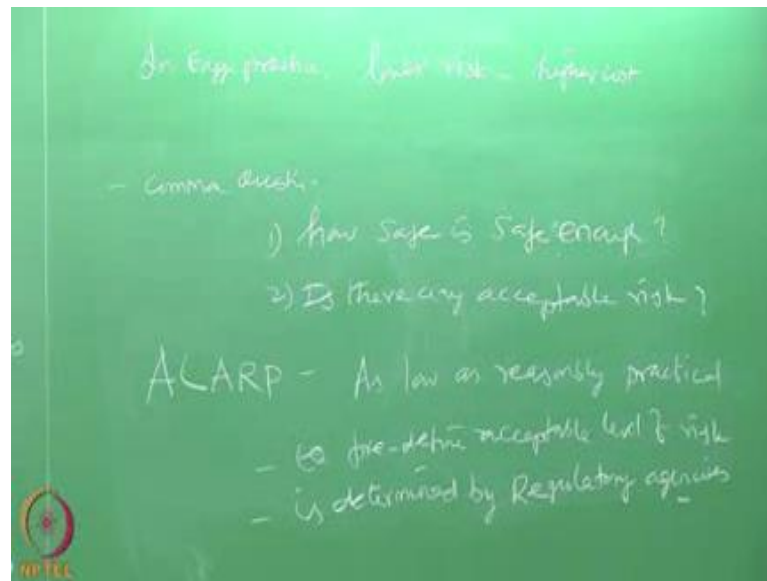 In Engg practice, lower risk - higher cost
- Common Quest.
1) how safe is safe enough?
2) Is there any acceptable risk?
ALARP - As low as reasonably practical
- to pre-define acceptable level of risk
- is determined by Regulatory agencies
NPTEL